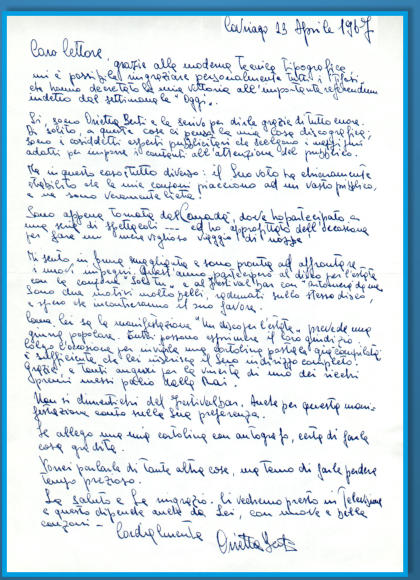 Cavriago 23 Aprile 1967
Caro lettore,
grazie alla moderna tecnica tipografica
mi è possibile ringraziare personalmente tutti i tifosi
che hanno decretato la mia vittoria all'importante referendum
indetto dal settimanale "Oggi".
Sì, sono Orietta Berti e Le scrivo per dirle grazie di tutto cuore.
Di solito, a queste cose ci pensa la mia Casa discografica;
sono i cosiddetti esperti pubblicitari che scelgono i mezzi più
adatti per imporre i cantanti all'attenzione del pubblico.
Ma in questo caso è tutto diverso: il Suo voto ha chiaramente
stabilito che le mie canzoni piacciono ad un vasto pubblico,
e ne sono veramente lieta!
Sono appena tornata dal Canada, dove ho partecipato a
una serie di spettacoli ... ed ho approfittato dell'occasione
per fare un meraviglioso viaggio di nozze!
Mi sento in forma smagliante e sono pronta ad affrontare
i nuovi impegni. Quest'anno parteciperò al disco per l'estate
con la canzone "Solo tu" e al Festivalbar con
Sono due motivi molto belli, radunati sullo stesso disco,
e spero che incontreranno il suo favore.
Come Lei sa la manifestazione "Un disco per l'estate" prevede una
giuria popolare. Tutti possono esprimere il loro giudizio
per inviarle una cartolina postale già compilata
è sufficiente che Lei inserisca il Suo indirizzo completo.
Grazie, e tanti auguri per la vincita di uno dei ricchi
premi messi in palio dalla Rai.
Non si dimentichi del Festivalbar. Anche per questa mani-
festazione conto sulla Sua preferenza.
Le allego una mia cartolina con autografo, certa di farle
cosa gradita.
Vorrei parlarle di tante altre cose, ma temo di farle perdere
tempo prezioso.
La saluto e La ringrazio. Ci vedremo presto in Televisione
e questo dipende anche da Lei, con nuove e belle
canzoni -
Cordialmente
Orietta Berti